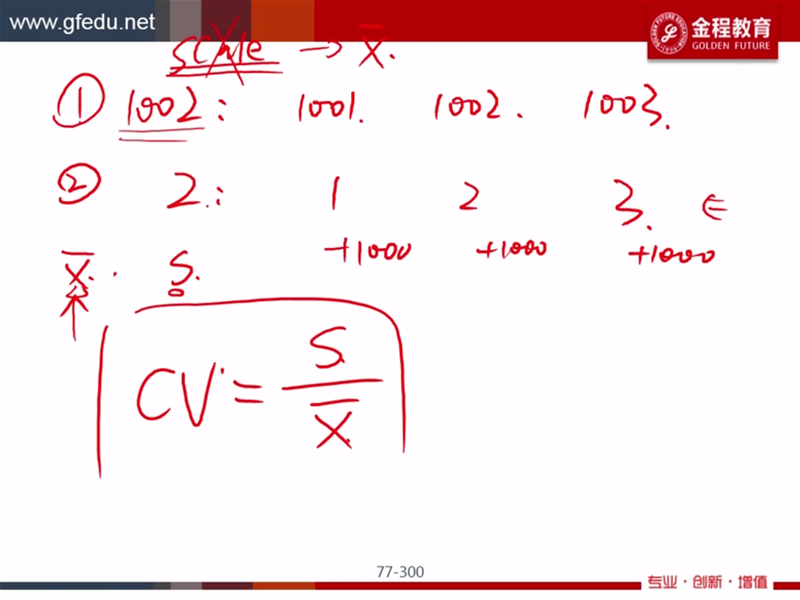 www.gfedu.net
金程教育
GOLDEN FUTURE
scale → x̄.
① 1002: 1001. 1002. 1003.
② 2: 1 2 3. ∈
+1000 +1000 +1000
x̄. S.
CV = S / X̄
77-300
专业·创新·增值